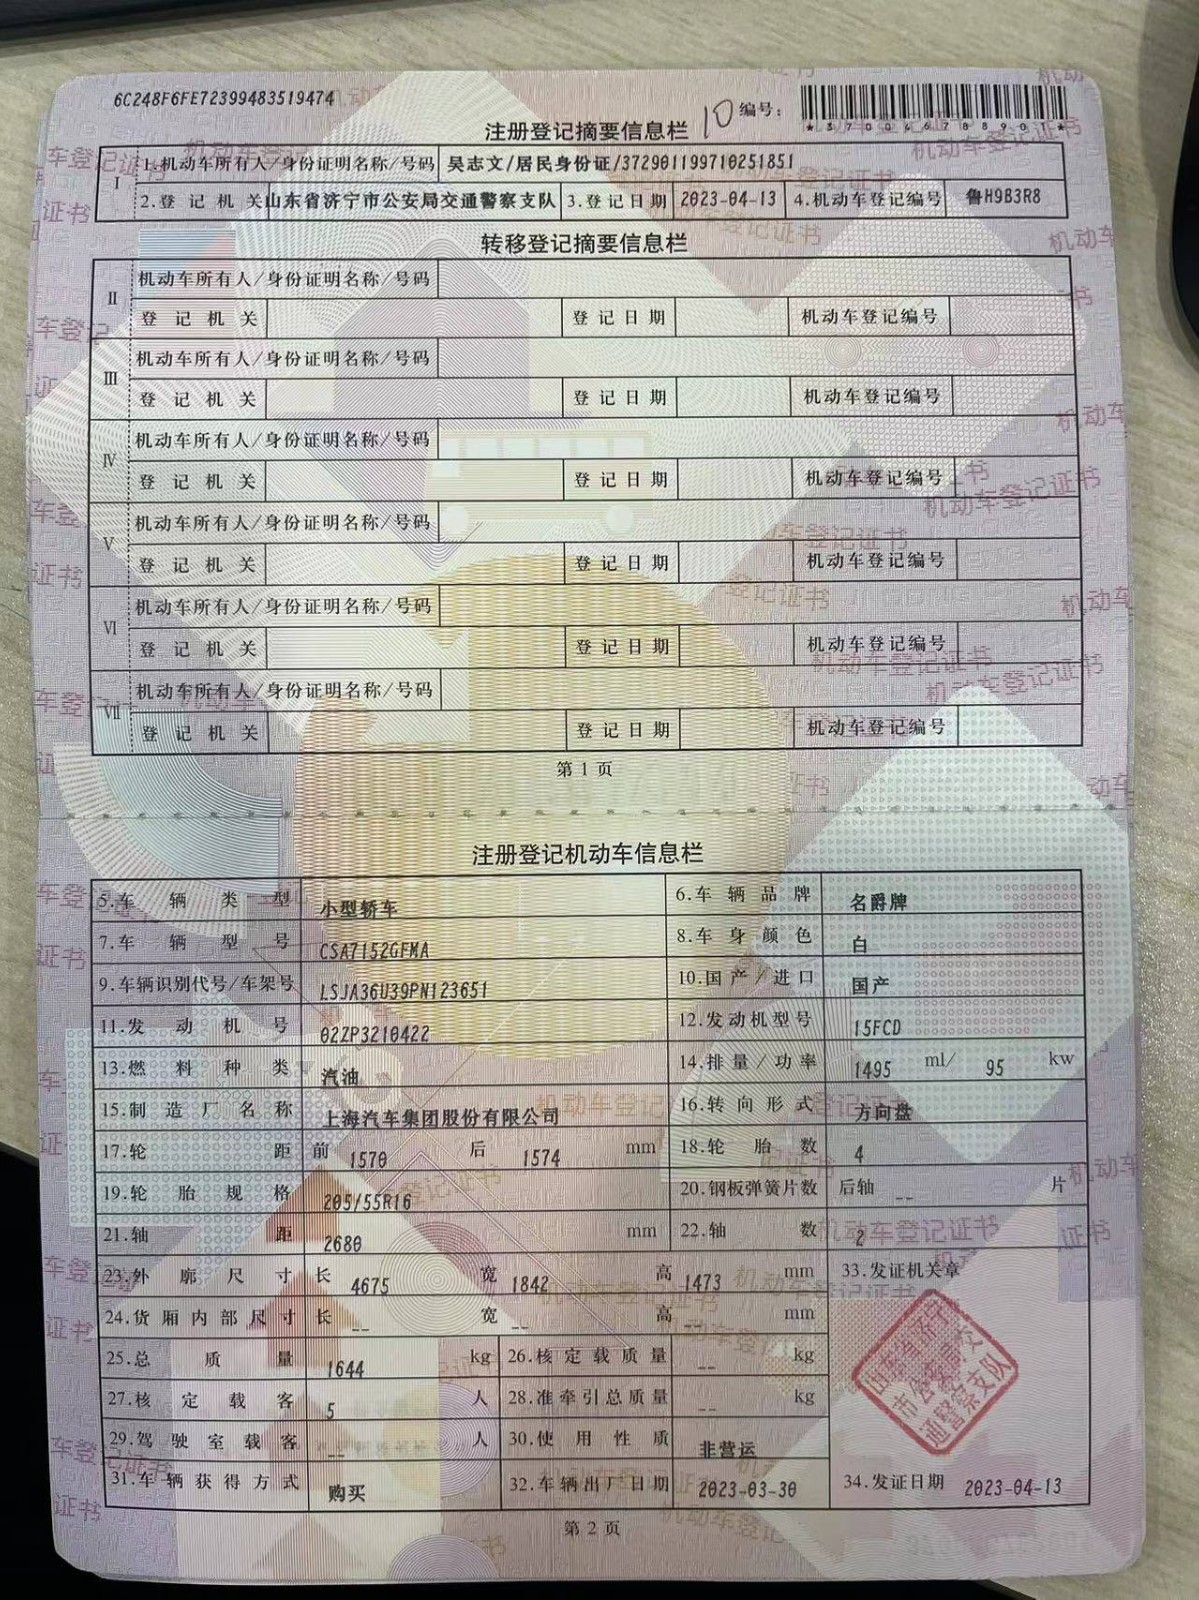 6C248F6FE72399483519474
10 编号：
*370046788907*
注册登记摘要信息栏
I 1.机动车所有人/身份证明名称/号码 吴志文/居民身份证/372901199710251851
2.登记机关 山东省济宁市公安局交通警察支队 3.登记日期 2023-04-13 4.机动车登记编号 鲁H9B3R8
转移登记摘要信息栏
II 机动车所有人/身份证明名称/号码
登记机关 登记日期 机动车登记编号
III 机动车所有人/身份证明名称/号码
登记机关 登记日期 机动车登记编号
IV 机动车所有人/身份证明名称/号码
登记机关 登记日期 机动车登记编号
V 机动车所有人/身份证明名称/号码
登记机关 登记日期 机动车登记编号
VI 机动车所有人/身份证明名称/号码
登记机关 登记日期 机动车登记编号
VII 机动车所有人/身份证明名称/号码
登记机关 登记日期 机动车登记编号
第1页
注册登记机动车信息栏
5.车辆类型 小型轿车 6.车辆品牌 名爵牌
7.车辆型号 CSA7152GFMA 8.车身颜色 白
9.车辆识别代号/车架号 LSJA36U39PN123651 10.国产/进口 国产
11.发动机号 02ZP3210422 12.发动机型号 15FCD
13.燃料种类 汽油 14.排量/功率 1495 ml/ 95 kw
15.制造厂名称 上海汽车集团股份有限公司 16.转向形式 方向盘
17.轮距 前 1570 后 1574 mm 18.轮胎数 4
19.轮胎规格 205/55R16 20.钢板弹簧片数 后轴 -- 片
21.轴距 2680 mm 22.轴数 2
23.外廓尺寸 长 4675 宽 1842 高 1473 mm 33.发证机关章
24.货厢内部尺寸 长 -- 宽 -- 高 -- mm
25.总质量 1644 kg 26.核定载质量 -- kg
27.核定载客 5 人 28.准牵引总质量 -- kg
29.驾驶室载客 -- 人 30.使用性质 非营运
31.车辆获得方式 购买 32.车辆出厂日期 2023-03-30 34.发证日期 2023-04-13
山东省济宁市公安局交通警察支队
第2页